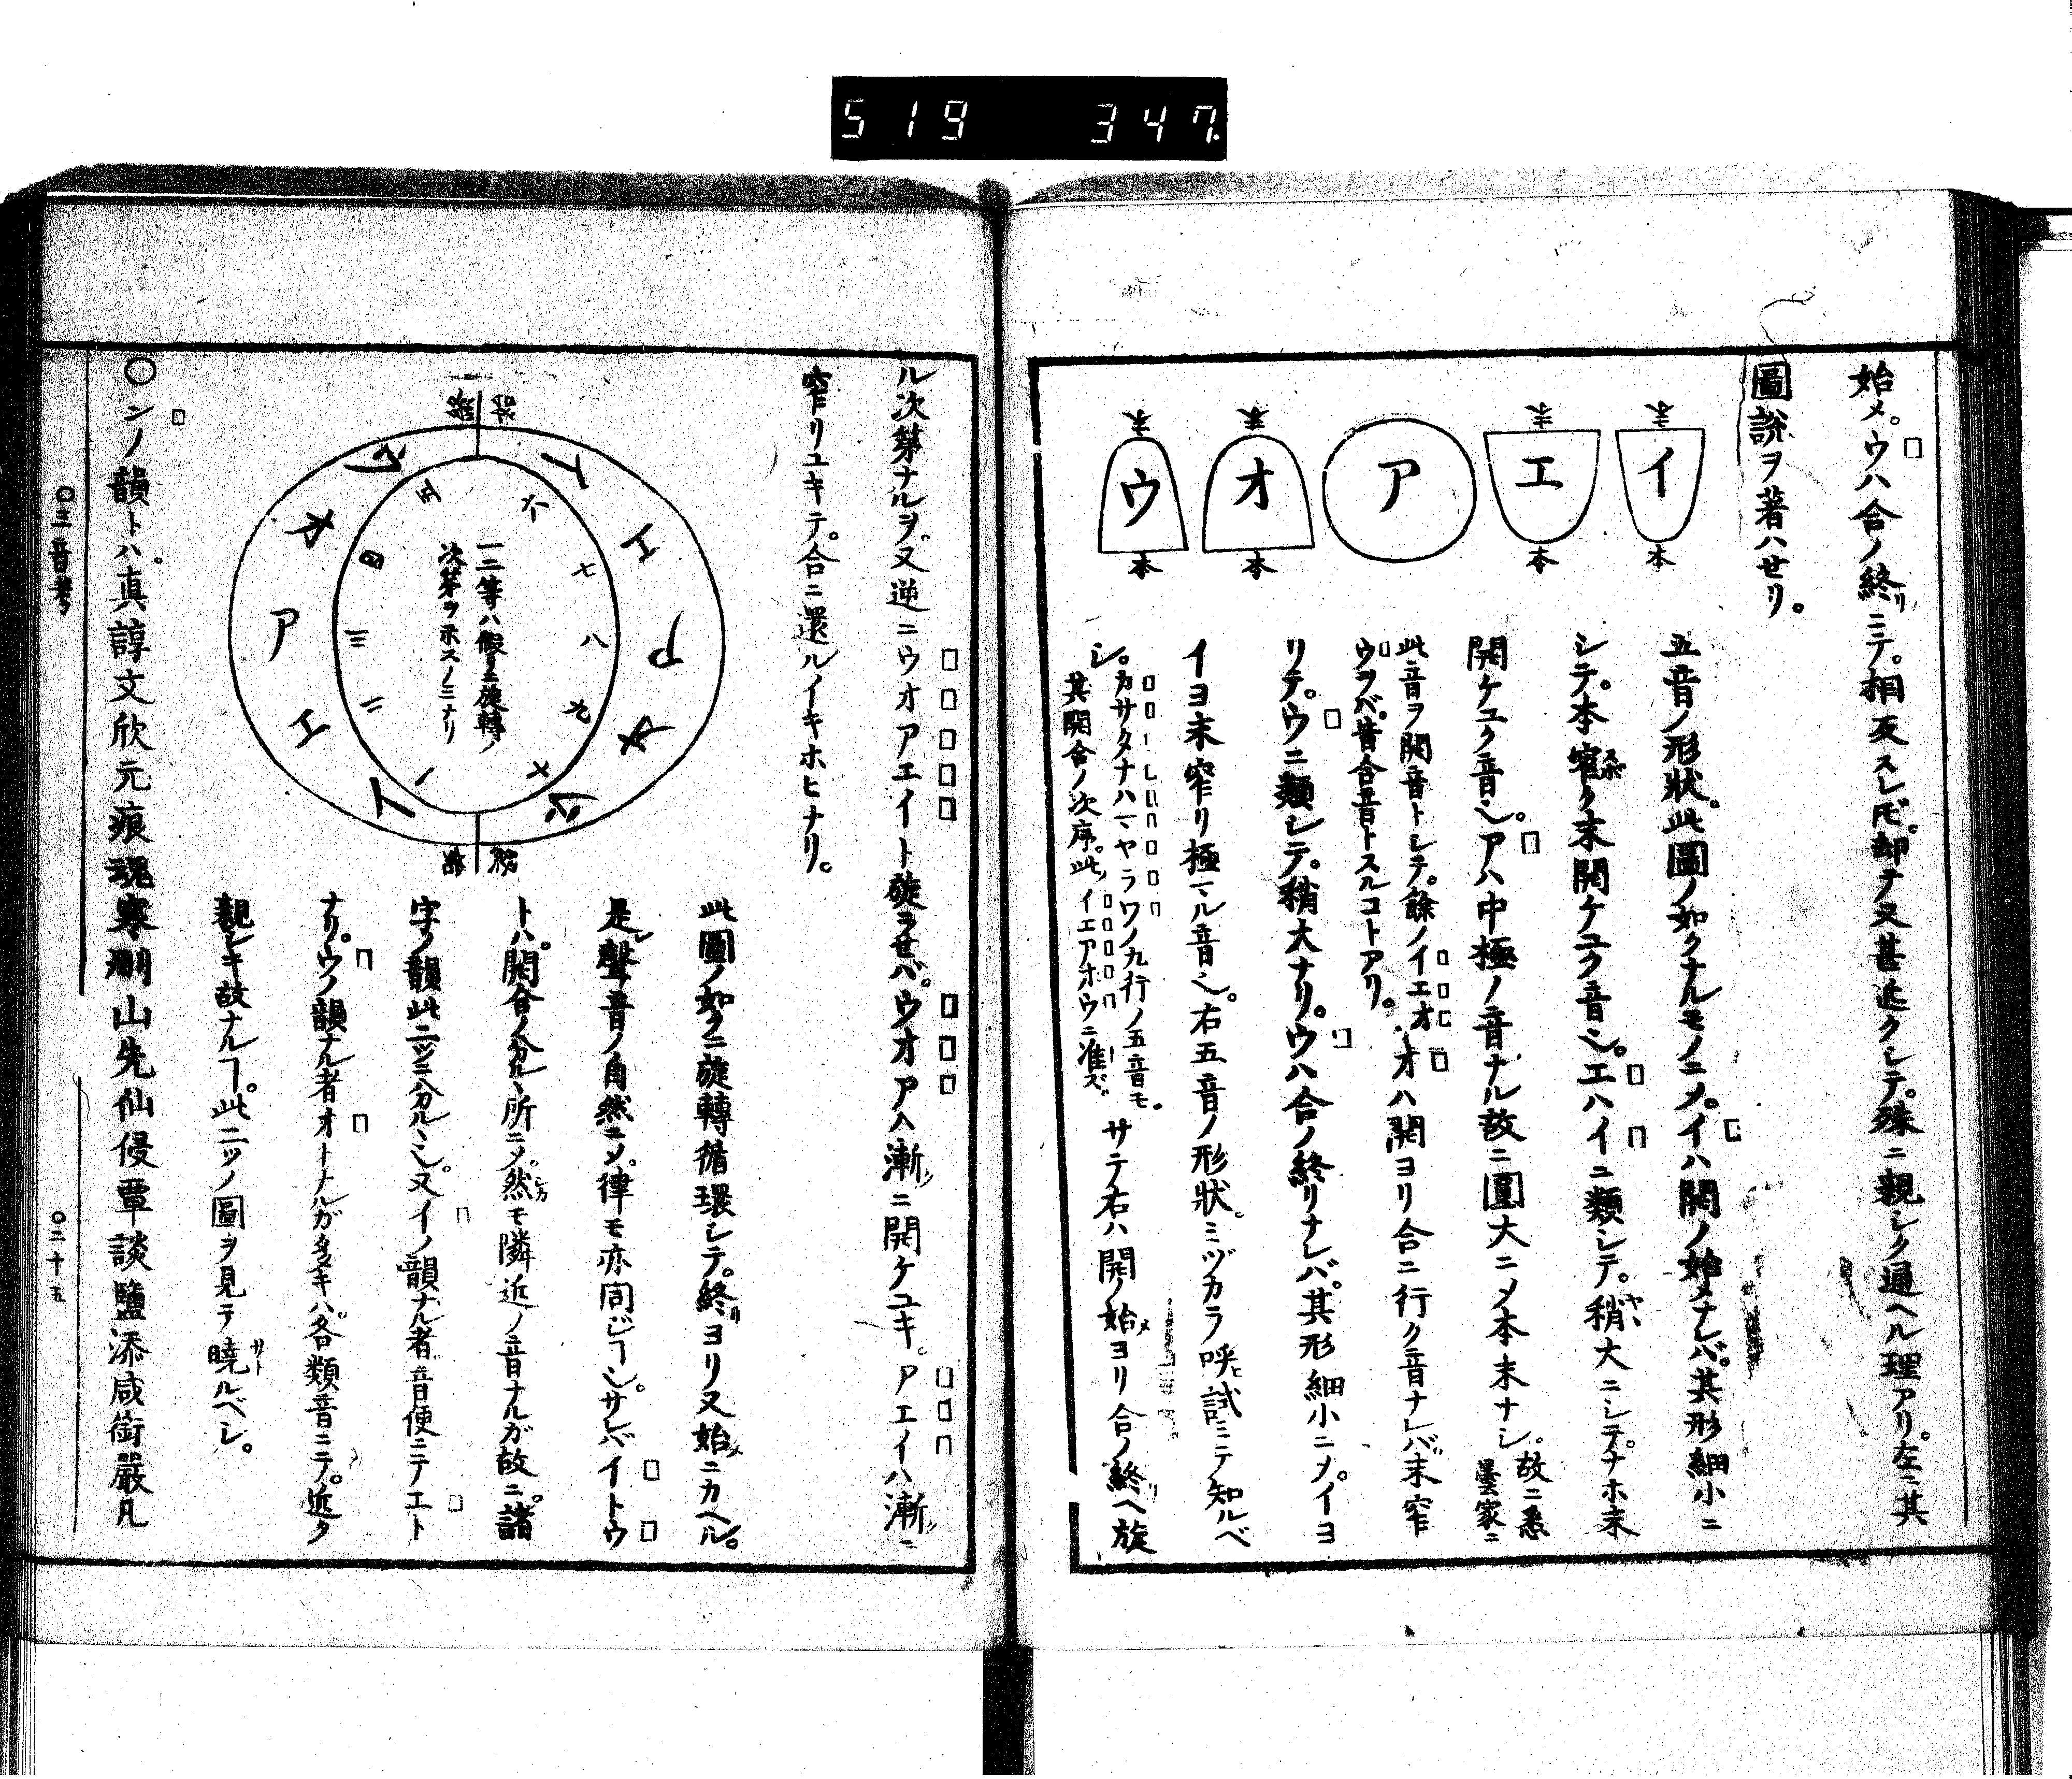 519 347
始メ。ウハ合ノ終リニテ。相反スレ𪜈。却テ又甚近クシテ。殊ニ親シク通ヘル理アリ。左ニ其
圖說ヲ著ハセリ。
末 イ 本
末 エ 本
ア
末 オ 本
末 ウ 本
五音ノ形狀。此圖ノ如クナルモノニ〆。イハ開ノ始メナレバ。其形細小ニ
シテ。本窄ク末開ケユク音也。エハイニ類シテ。稍大ニシテ。ナホ末
開ケユク音也。アハ中極ノ音ナル故ニ圓大ニ〆本末ナシ。故ニ悉曇家ニ
此音ヲ開音トシテ。餘ノイエオウヲバ。皆合音トスルコトアリ。オハ開ヨリ合ニ行ク音ナレバ。末窄
リテ。ウニ類シテ。稍大ナリ。ウハ合ノ終リナレバ。其形細小ニ〆。イヨ
イヨ末窄リ極マル音也。右五音ノ形狀。ミヅカラ呼試ミテ知ルベ
シ。カサタナハマヤラワノ九行ノ五音モ。其開合ノ次序。此イエアオウニ准ズ サテ右ハ開ノ始メヨリ合ノ終リヘ旋
ル次第ナルヲ。又逆ニウオアエイト旋ラセバ。ウオアハ漸ニ開ケユキ。アエイハ漸ニ
窄リユキテ。合ニ還ルイキホヒナリ。
始 終
イ エ ア オ ウ
イ エ ア オ ウ
一 二 三 四 五 六 七 八 九 十
一二等ハ假リニ旋轉ノ
次第ヲ示スノミナリ
終 始
此圖ノ如クニ旋轉循環シテ。終リヨリ又始メニカヘル。
是レ聲音ノ自然ニ〆。律モ亦同ジヿ也。サレバイトウ
トハ。開合ノ分ルヽ所ニ〆。然モ隣近ノ音ナルガ故ニ。諸
字ノ韻此二ツニ分ルヽ也。又イノ韻ナル者音便ニテエト
ナリ。ウノ韻ナル者オトナルガ多キハ。各類音ニテ。近ク
親シキ故ナルヿ。此二ツノ圖ヲ見テ曉ルベシ。
〇ンノ韻トハ。真諄文欣元痕魂寒刪山先仙侵覃談鹽添咸銜嚴凡
〇三音考
〇二十五